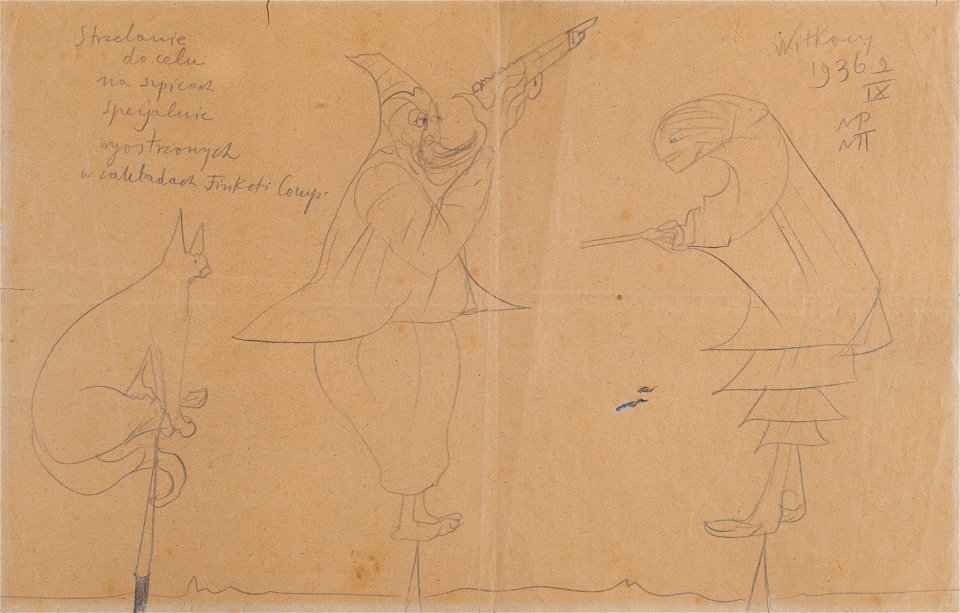 Strzelanie
do celu
na szpicach
specjalnie
wyostrzonych
w zakładach Fink et i Comp.
Witkacy
1936 2
IX
NP
NΠ